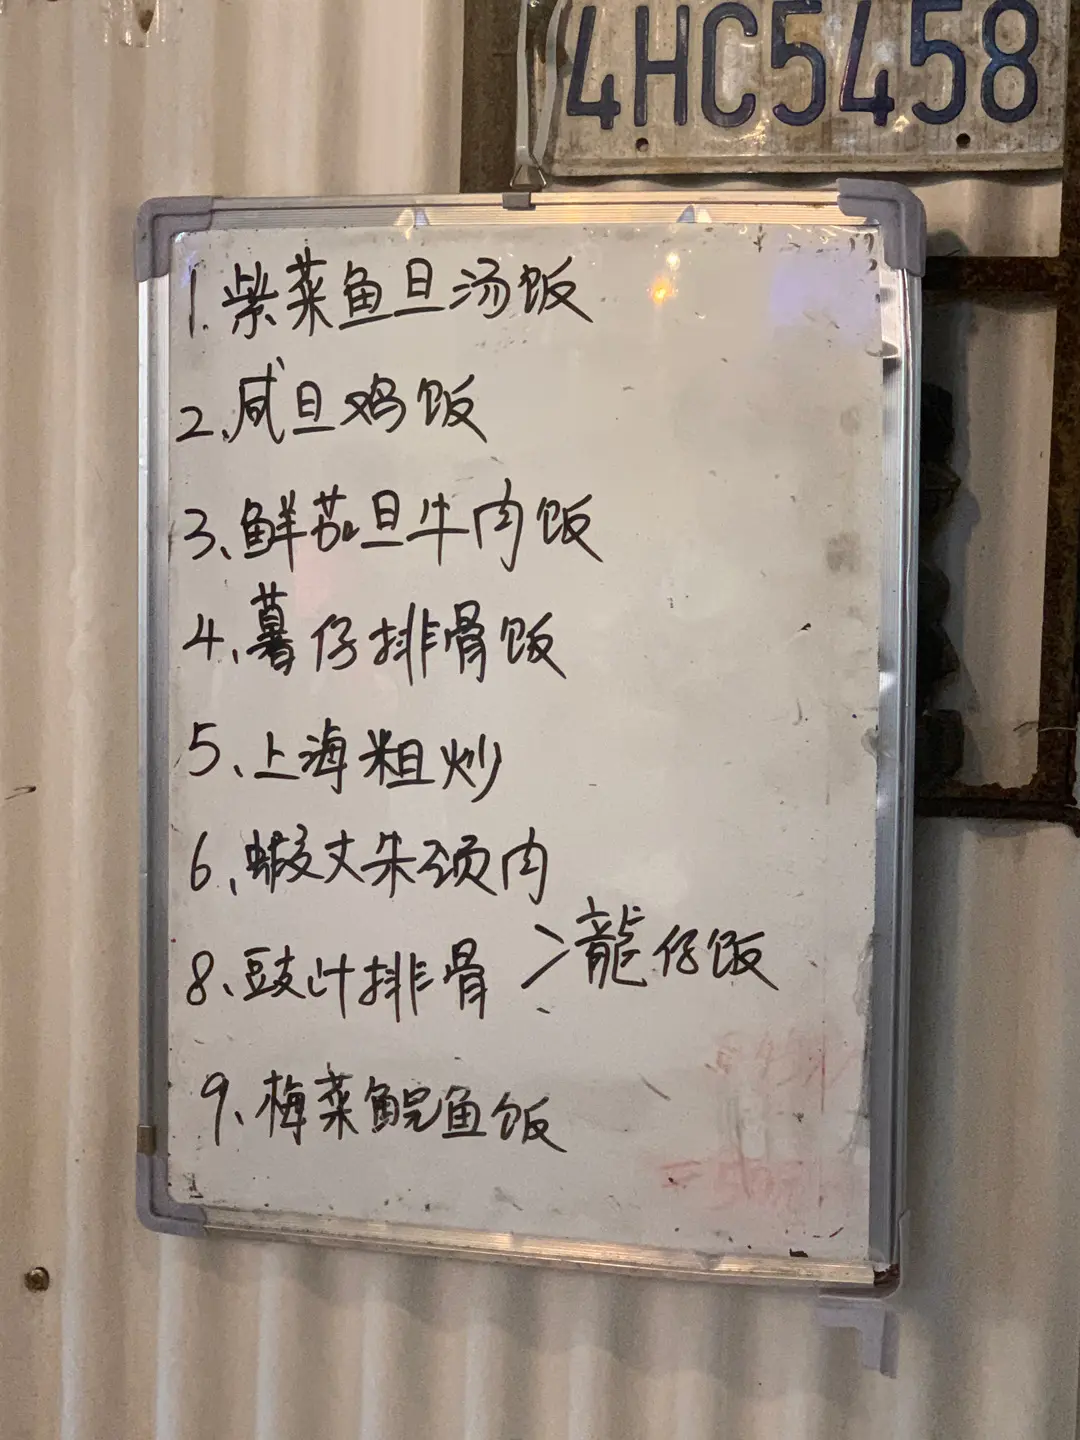 4HC5458
1.紫菜鱼旦汤饭
2.咸旦鸡饭
3、鲜茄旦牛肉饭
4、薯仔排骨饭
5、上海粗炒
6、蝦丈朱颈肉
8、豉汁排骨 > 龍仔饭
9、梅菜鲩鱼饭